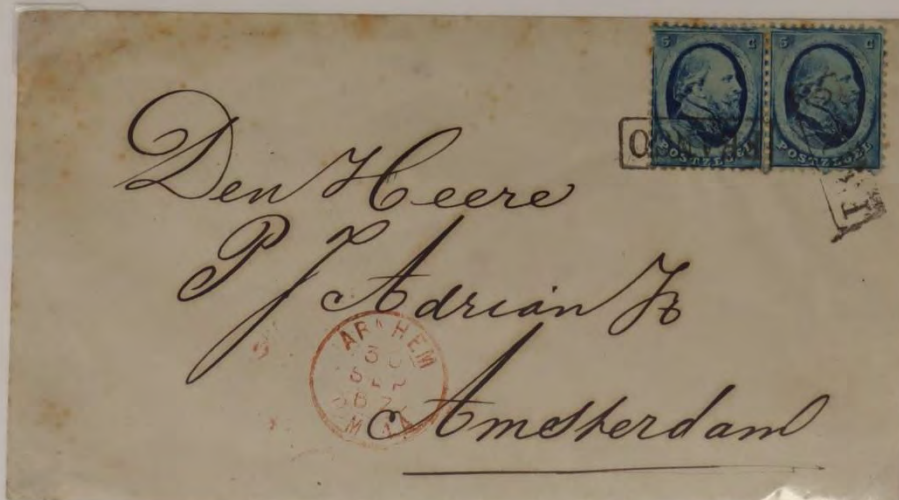 5 C 5 C
POSTZEGEL POSTZEGEL
Den Heere
P J Adrian Jz
Amsterdam
ARNHEM
SEP